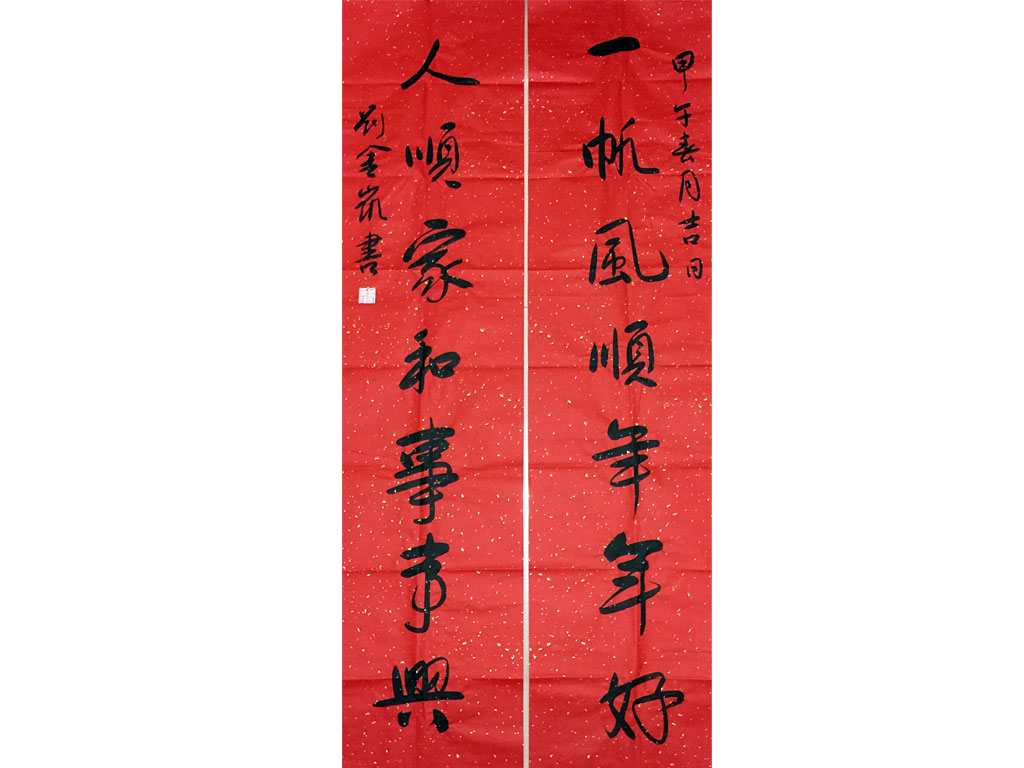 甲午春月吉日
一帆風順年年好
人順家和事事興
劉金凱書